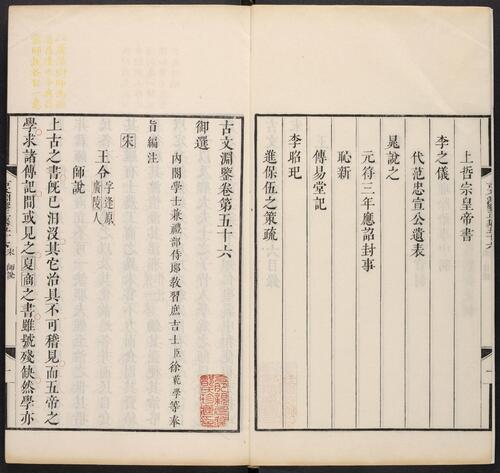 上哲宗皇帝書
李之儀
代范忠宣公遺表
晁說之
元符三年應詔封事
恥新
傳易堂記
李昭玘
進保伍之策疏
古文淵鑒卷第五十六
御選
內閣學士兼禮部侍郎教習庶吉士臣徐乾學等奉
旨編注
宋
王令字逢原廣陵人
師說
上古之書既已汩沒其它治具不可稽見而五帝之
學求諸傳記間或見之夏商之書雖號殘缺然學亦